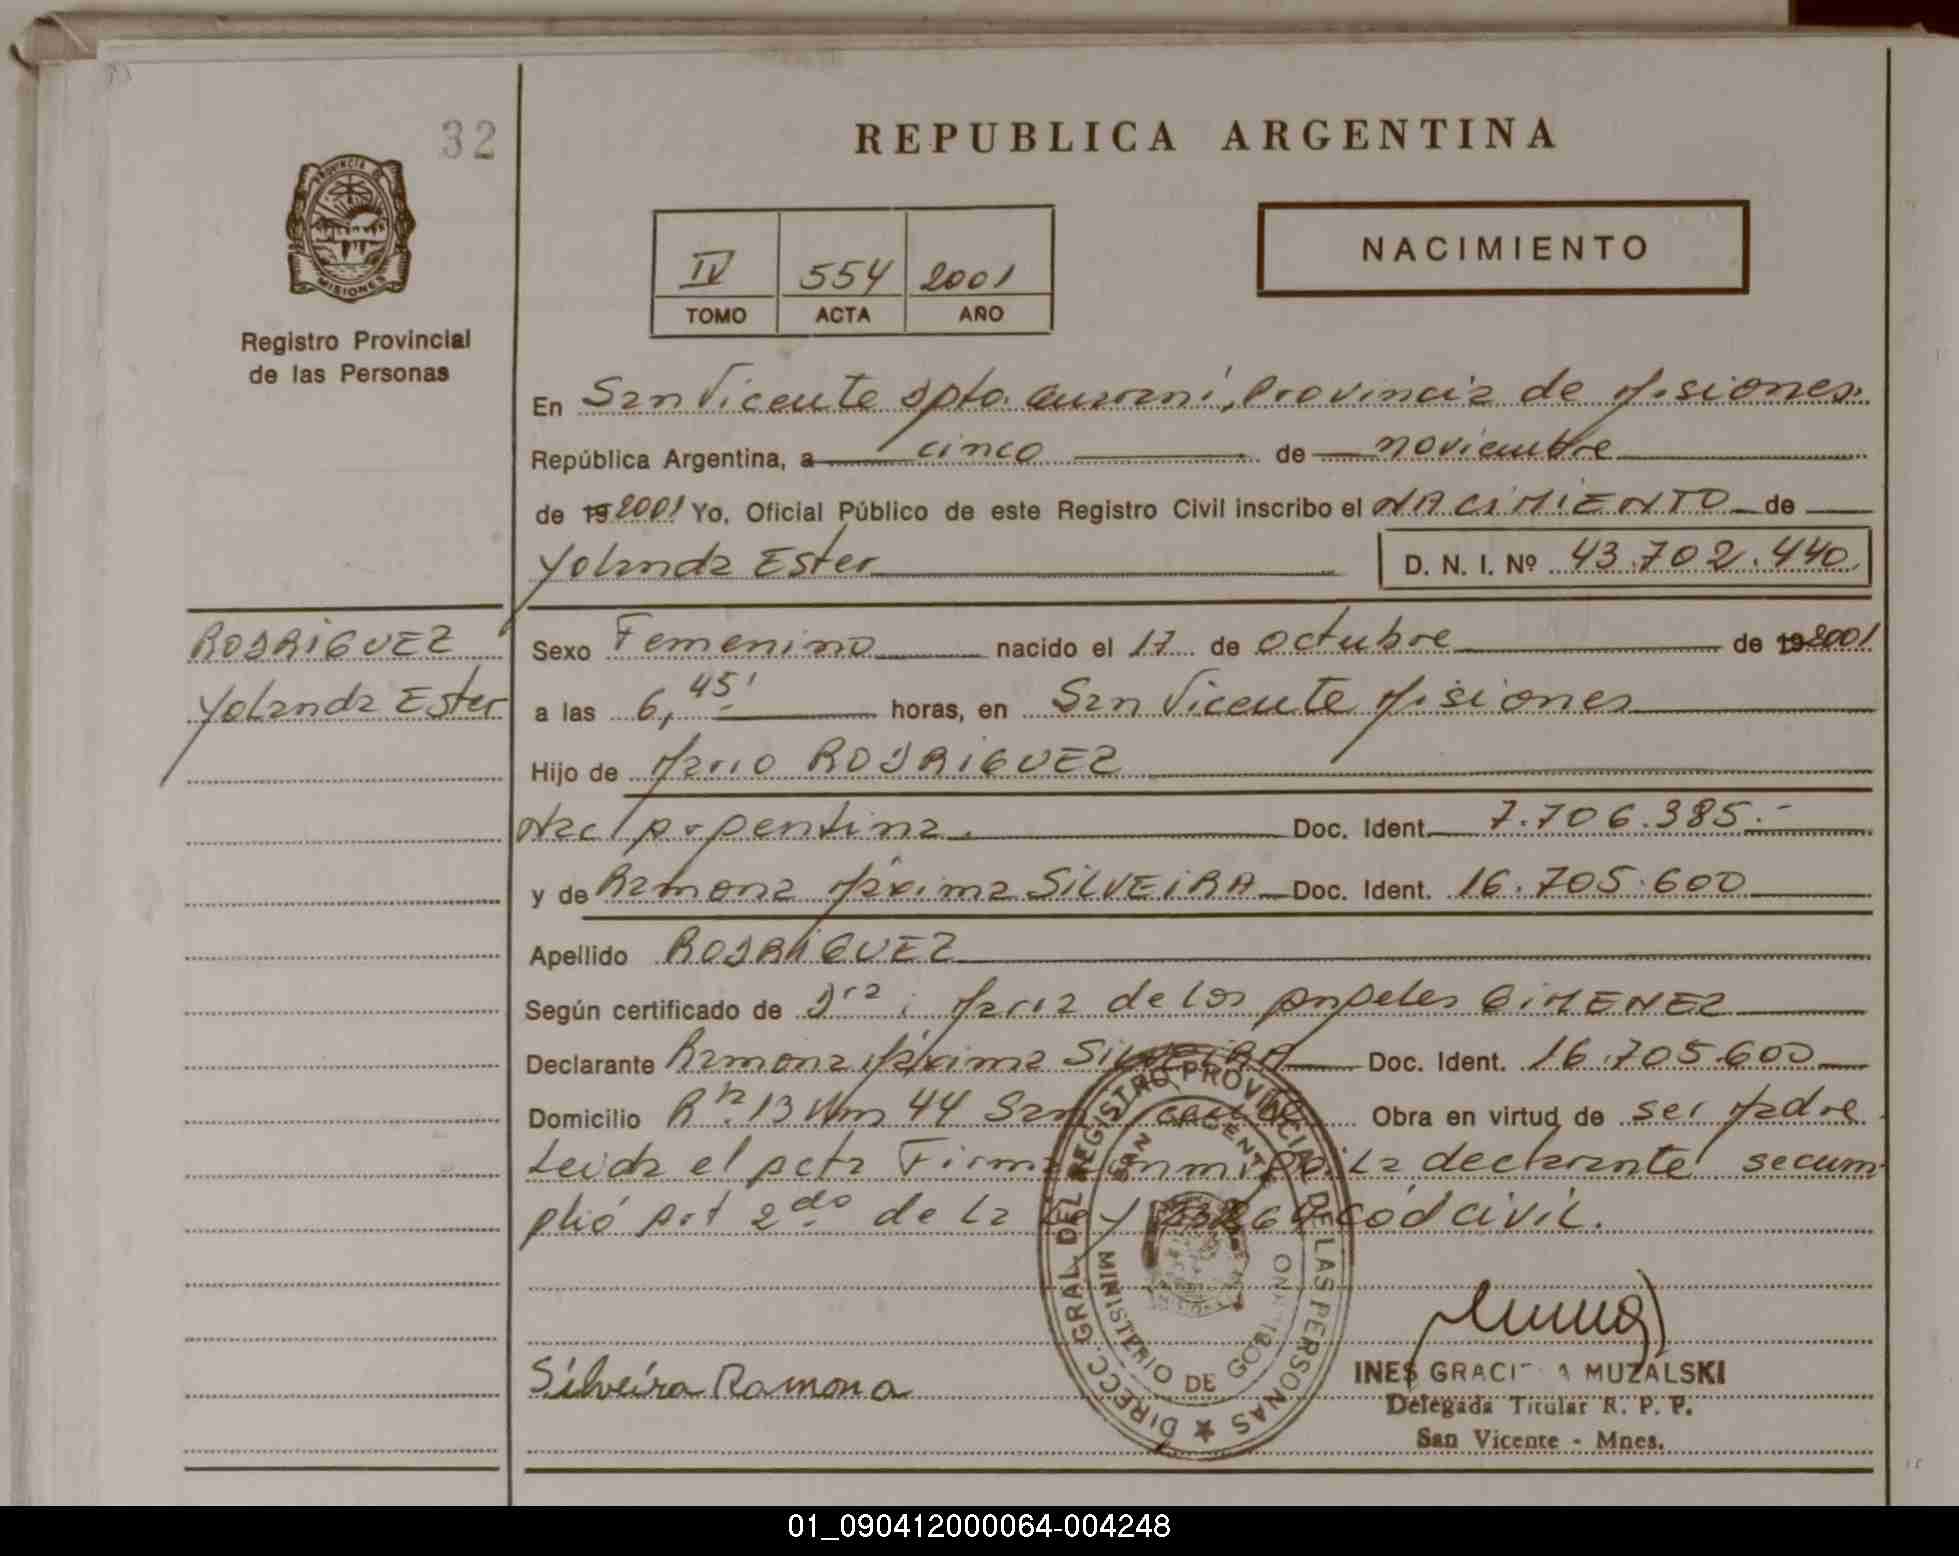 32
REPUBLICA ARGENTINA
PROVINCIA DE
MISIONES
Registro Provincial
de las Personas
IV 554 2001
TOMO ACTA AÑO
NACIMIENTO
En San Vicente Dpto. Guaraní, Provincia de Misiones.
República Argentina, a cinco de noviembre
de 19 2001 Yo, Oficial Público de este Registro Civil inscribo el NACIMIENTO de
Yolanda Ester D. N. I. Nº 43.702.440
RODRIGUEZ
Yolanda Ester
Sexo Femenino nacido el 17 de octubre de 19 2001
a las 6,45' horas, en San Vicente Misiones
Hijo de Mario RODRIGUEZ
Nac Argentina. Doc. Ident. 7.706.385.-
y de Ramona Máxima SILVEIRA Doc. Ident. 16.705.600
Apellido RODRIGUEZ
Según certificado de Dra: Maria de los Angeles GIMENEZ
Declarante Ramona Máxima SILVEIRA Doc. Ident. 16.705.600
Domicilio 13 Km 44 San Vicente Obra en virtud de ser Madre
Leida el acta Firma la declarante secum-
plió Art 2do de la Ley cód civil.
DIRECC. GRAL. DEL REGISTRO PROVINCIAL DE LAS PERSONAS
SAN VICENTE
MINISTERIO DE GOBIERNO
Silveira Ramona
INES GRACIELA MUZALSKI
Delegada Titular R. P. P.
San Vicente - Mnes.
01_090412000064-004248